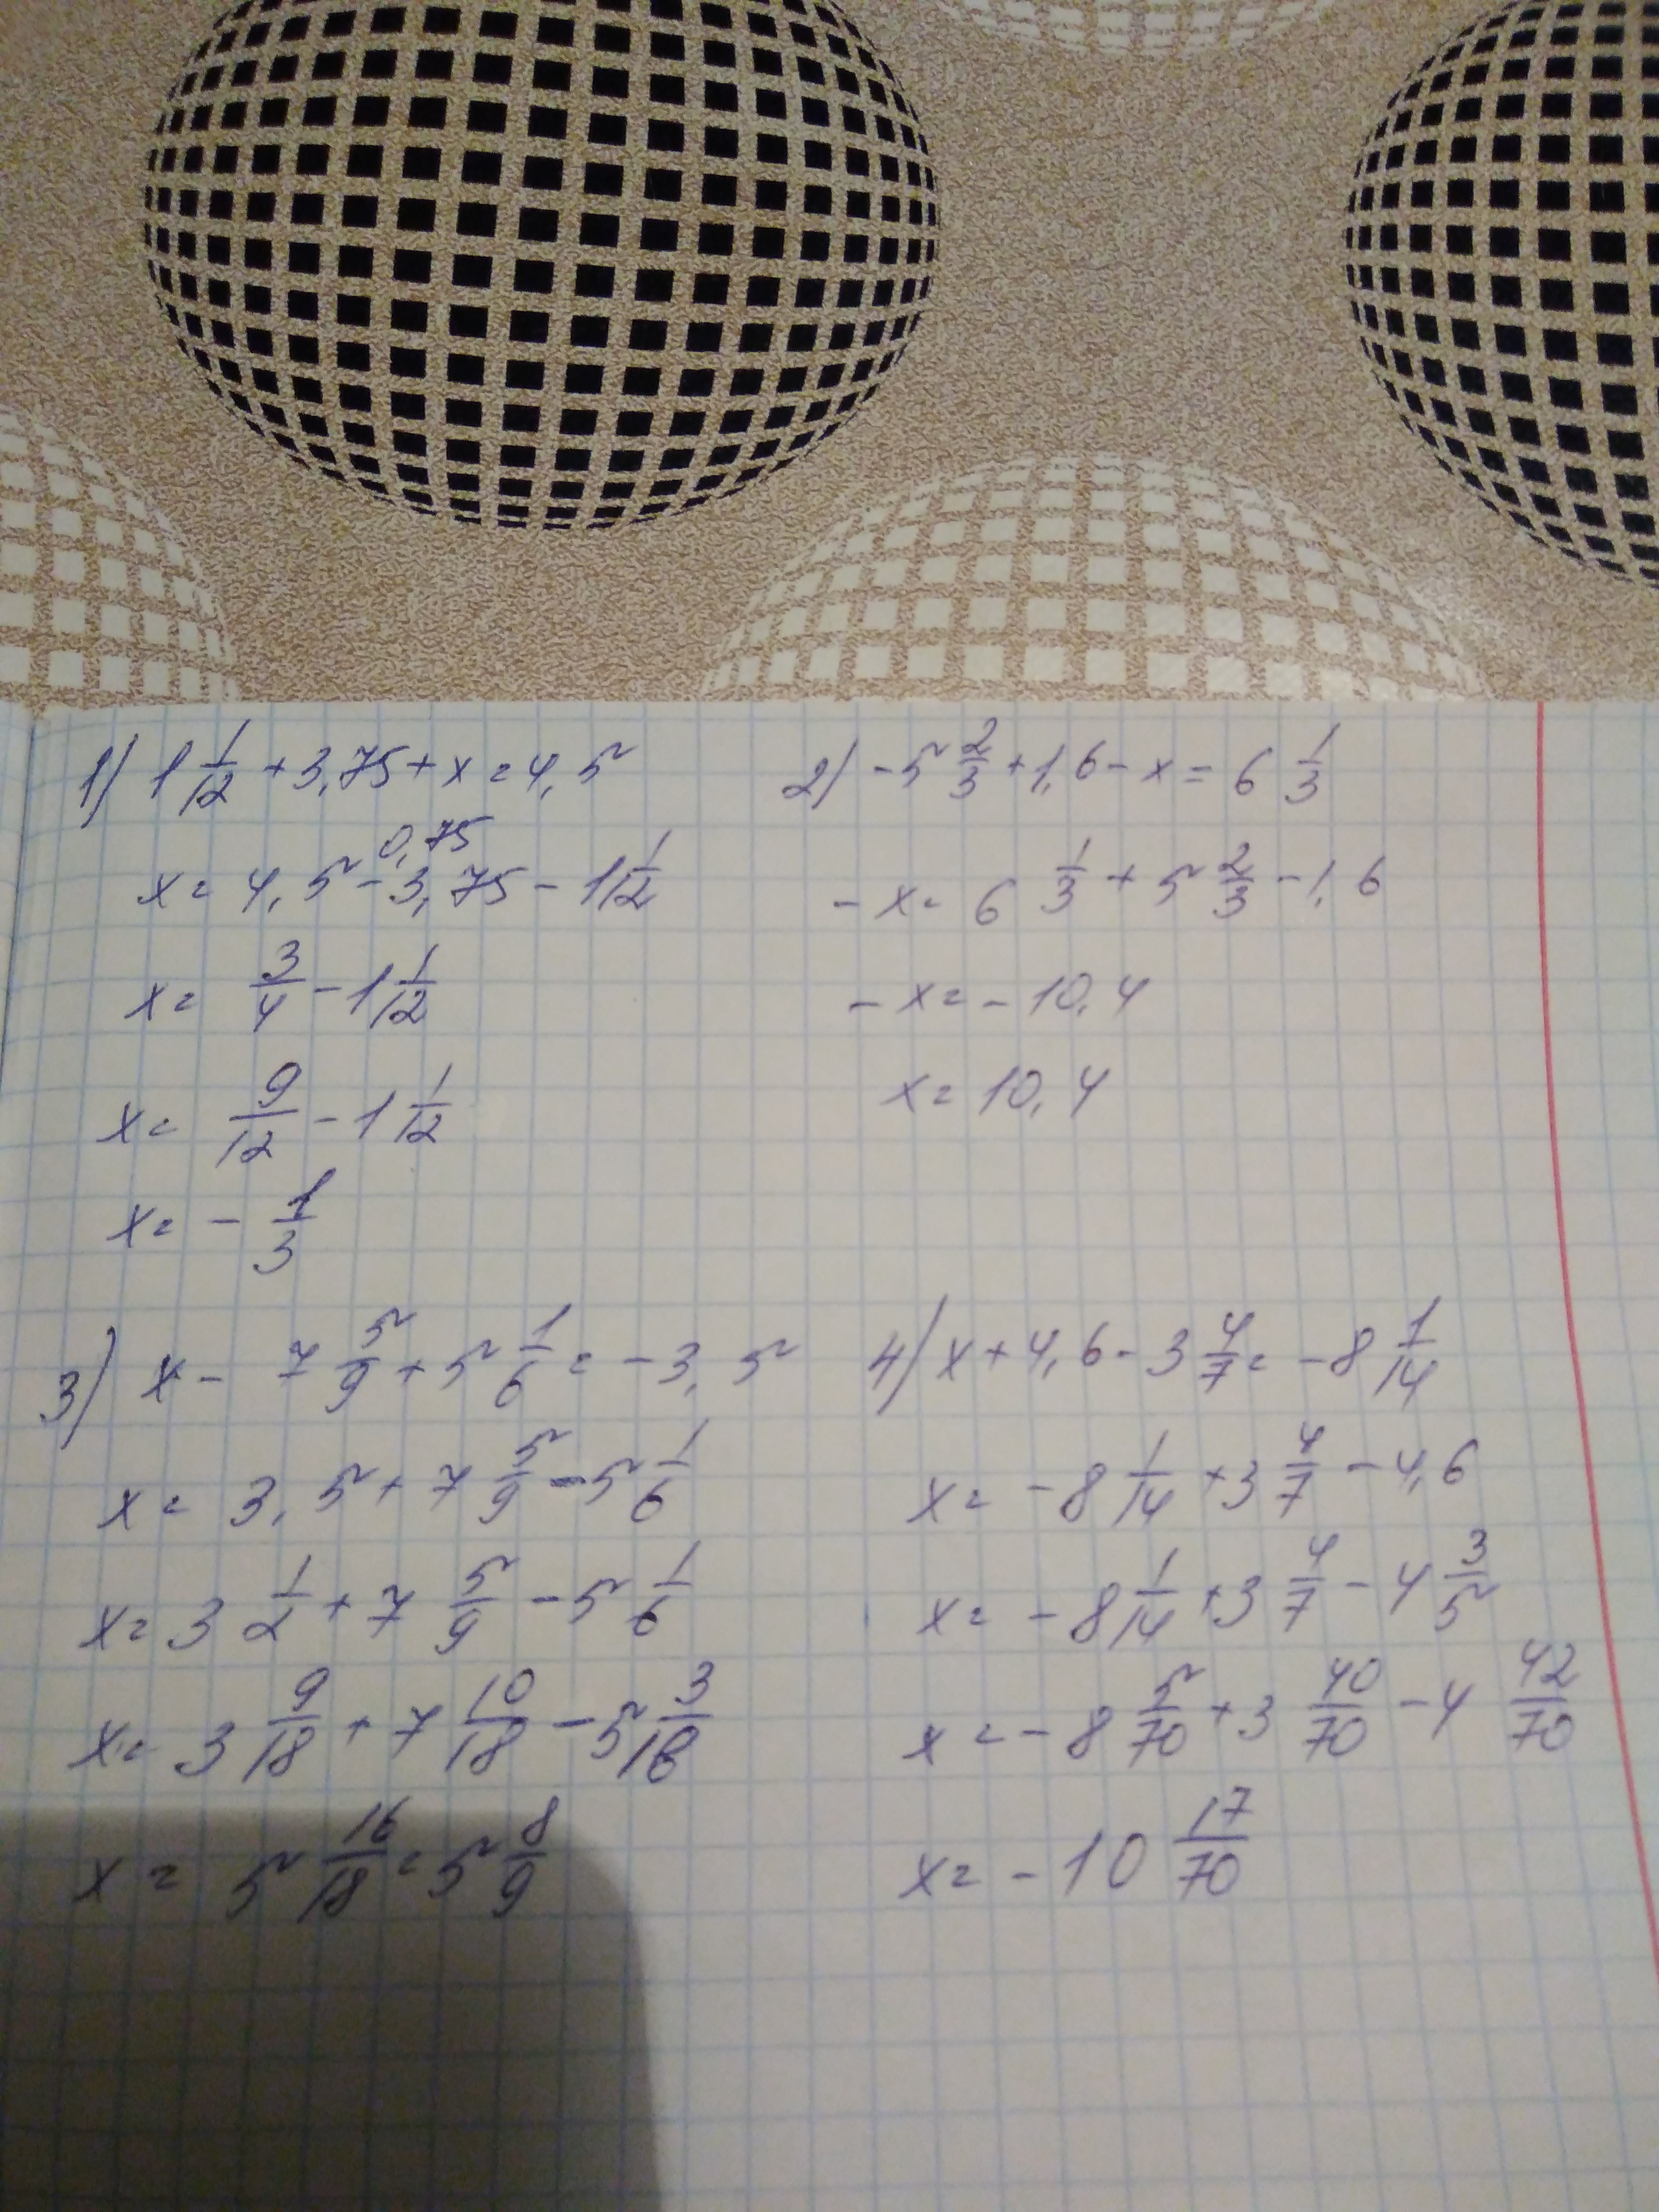 1) 1 1/12 + 3,75 + x = 4,5
0,75
x = 4,5 - 3,75 - 1 1/12
x = 3/4 - 1 1/12
x = 9/12 - 1 1/12
x = - 1/3
2) -5 2/3 + 1,6 - x = 6 1/3
- x = 6 1/3 + 5 2/3 - 1,6
- x = - 10,4
x = 10,4
3) x - 7 5/9 + 5 1/6 = - 3,5
x = 3,5 + 7 5/9 - 5 1/6
x = 3 1/2 + 7 5/9 - 5 1/6
x = 3 9/18 + 7 10/18 - 5 3/18
x = 5 16/18 = 5 8/9
4) x + 4,6 - 3 4/7 = - 8 1/14
x = - 8 1/14 + 3 4/7 - 4,6
x = - 8 1/14 + 3 4/7 - 4 3/5
x = - 8 5/70 + 3 40/70 - 4 42/70
x = - 10 17/70